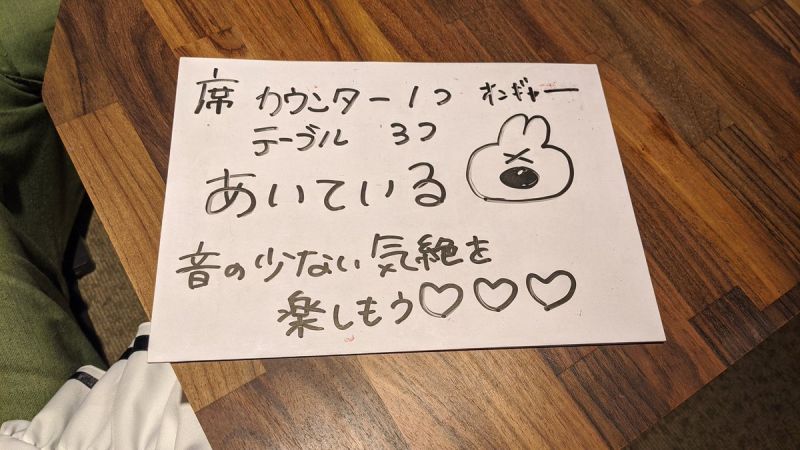 席 カウンター 1つ オンギャー
テーブル 3つ
あいている
音の少ない気絶を
楽しもう♡♡♡